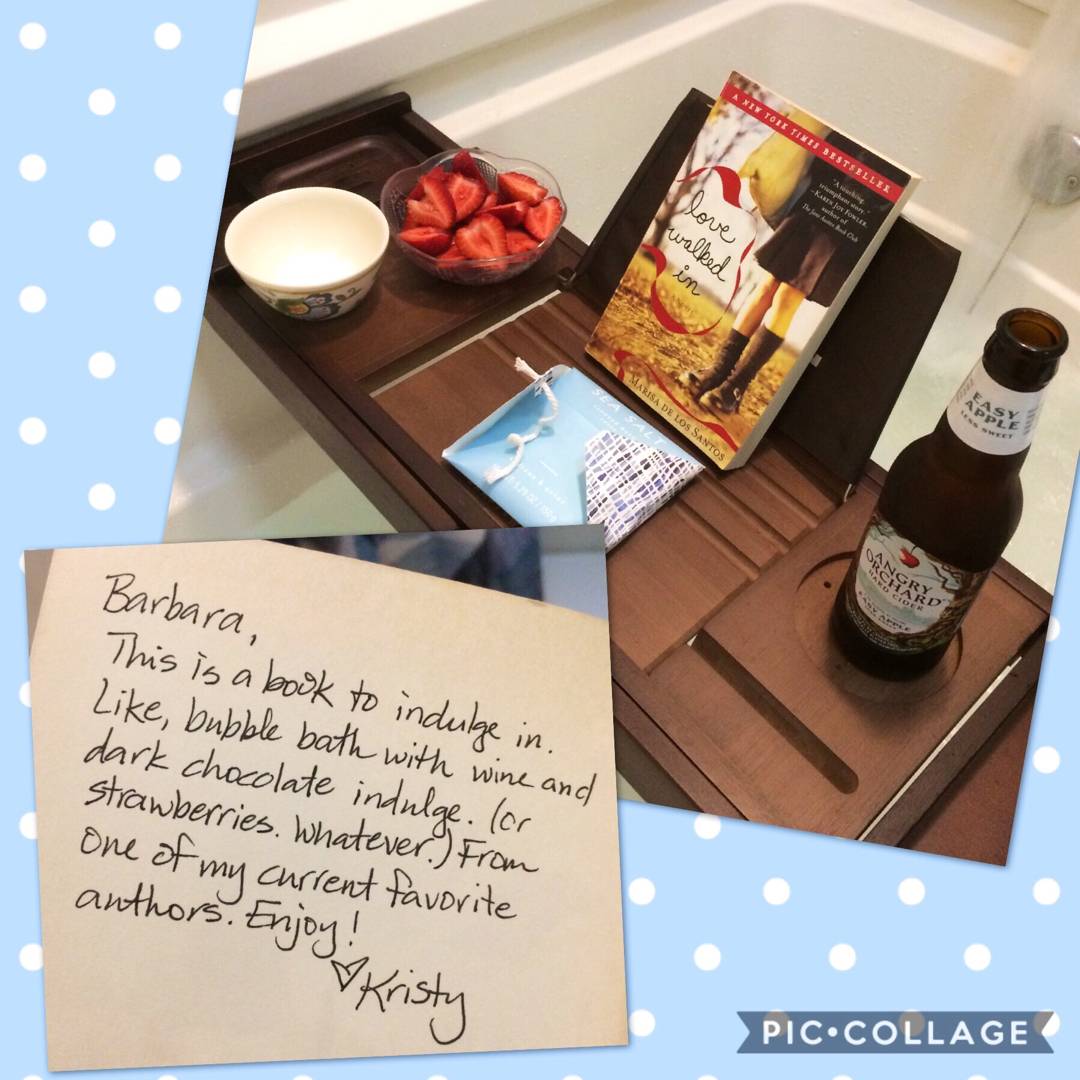 A NEW YORK TIMES BESTSELLER
"A touching,
triumphant story."
—KAREN JOY FOWLER,
author of
The Jane Austen Book Club
love
walked
in
MARISA DE LOS SANTOS
SEA SALT
EASY
APPLE
LESS SWEET
ANGRY
ORCHARD
HARD CIDER
EASY APPLE
Barbara,
This is a book to indulge in.
Like, bubble bath with wine and
dark chocolate indulge. (or
strawberries. Whatever.) From
one of my current favorite
authors. Enjoy!
♡Kristy
PIC•COLLAGE